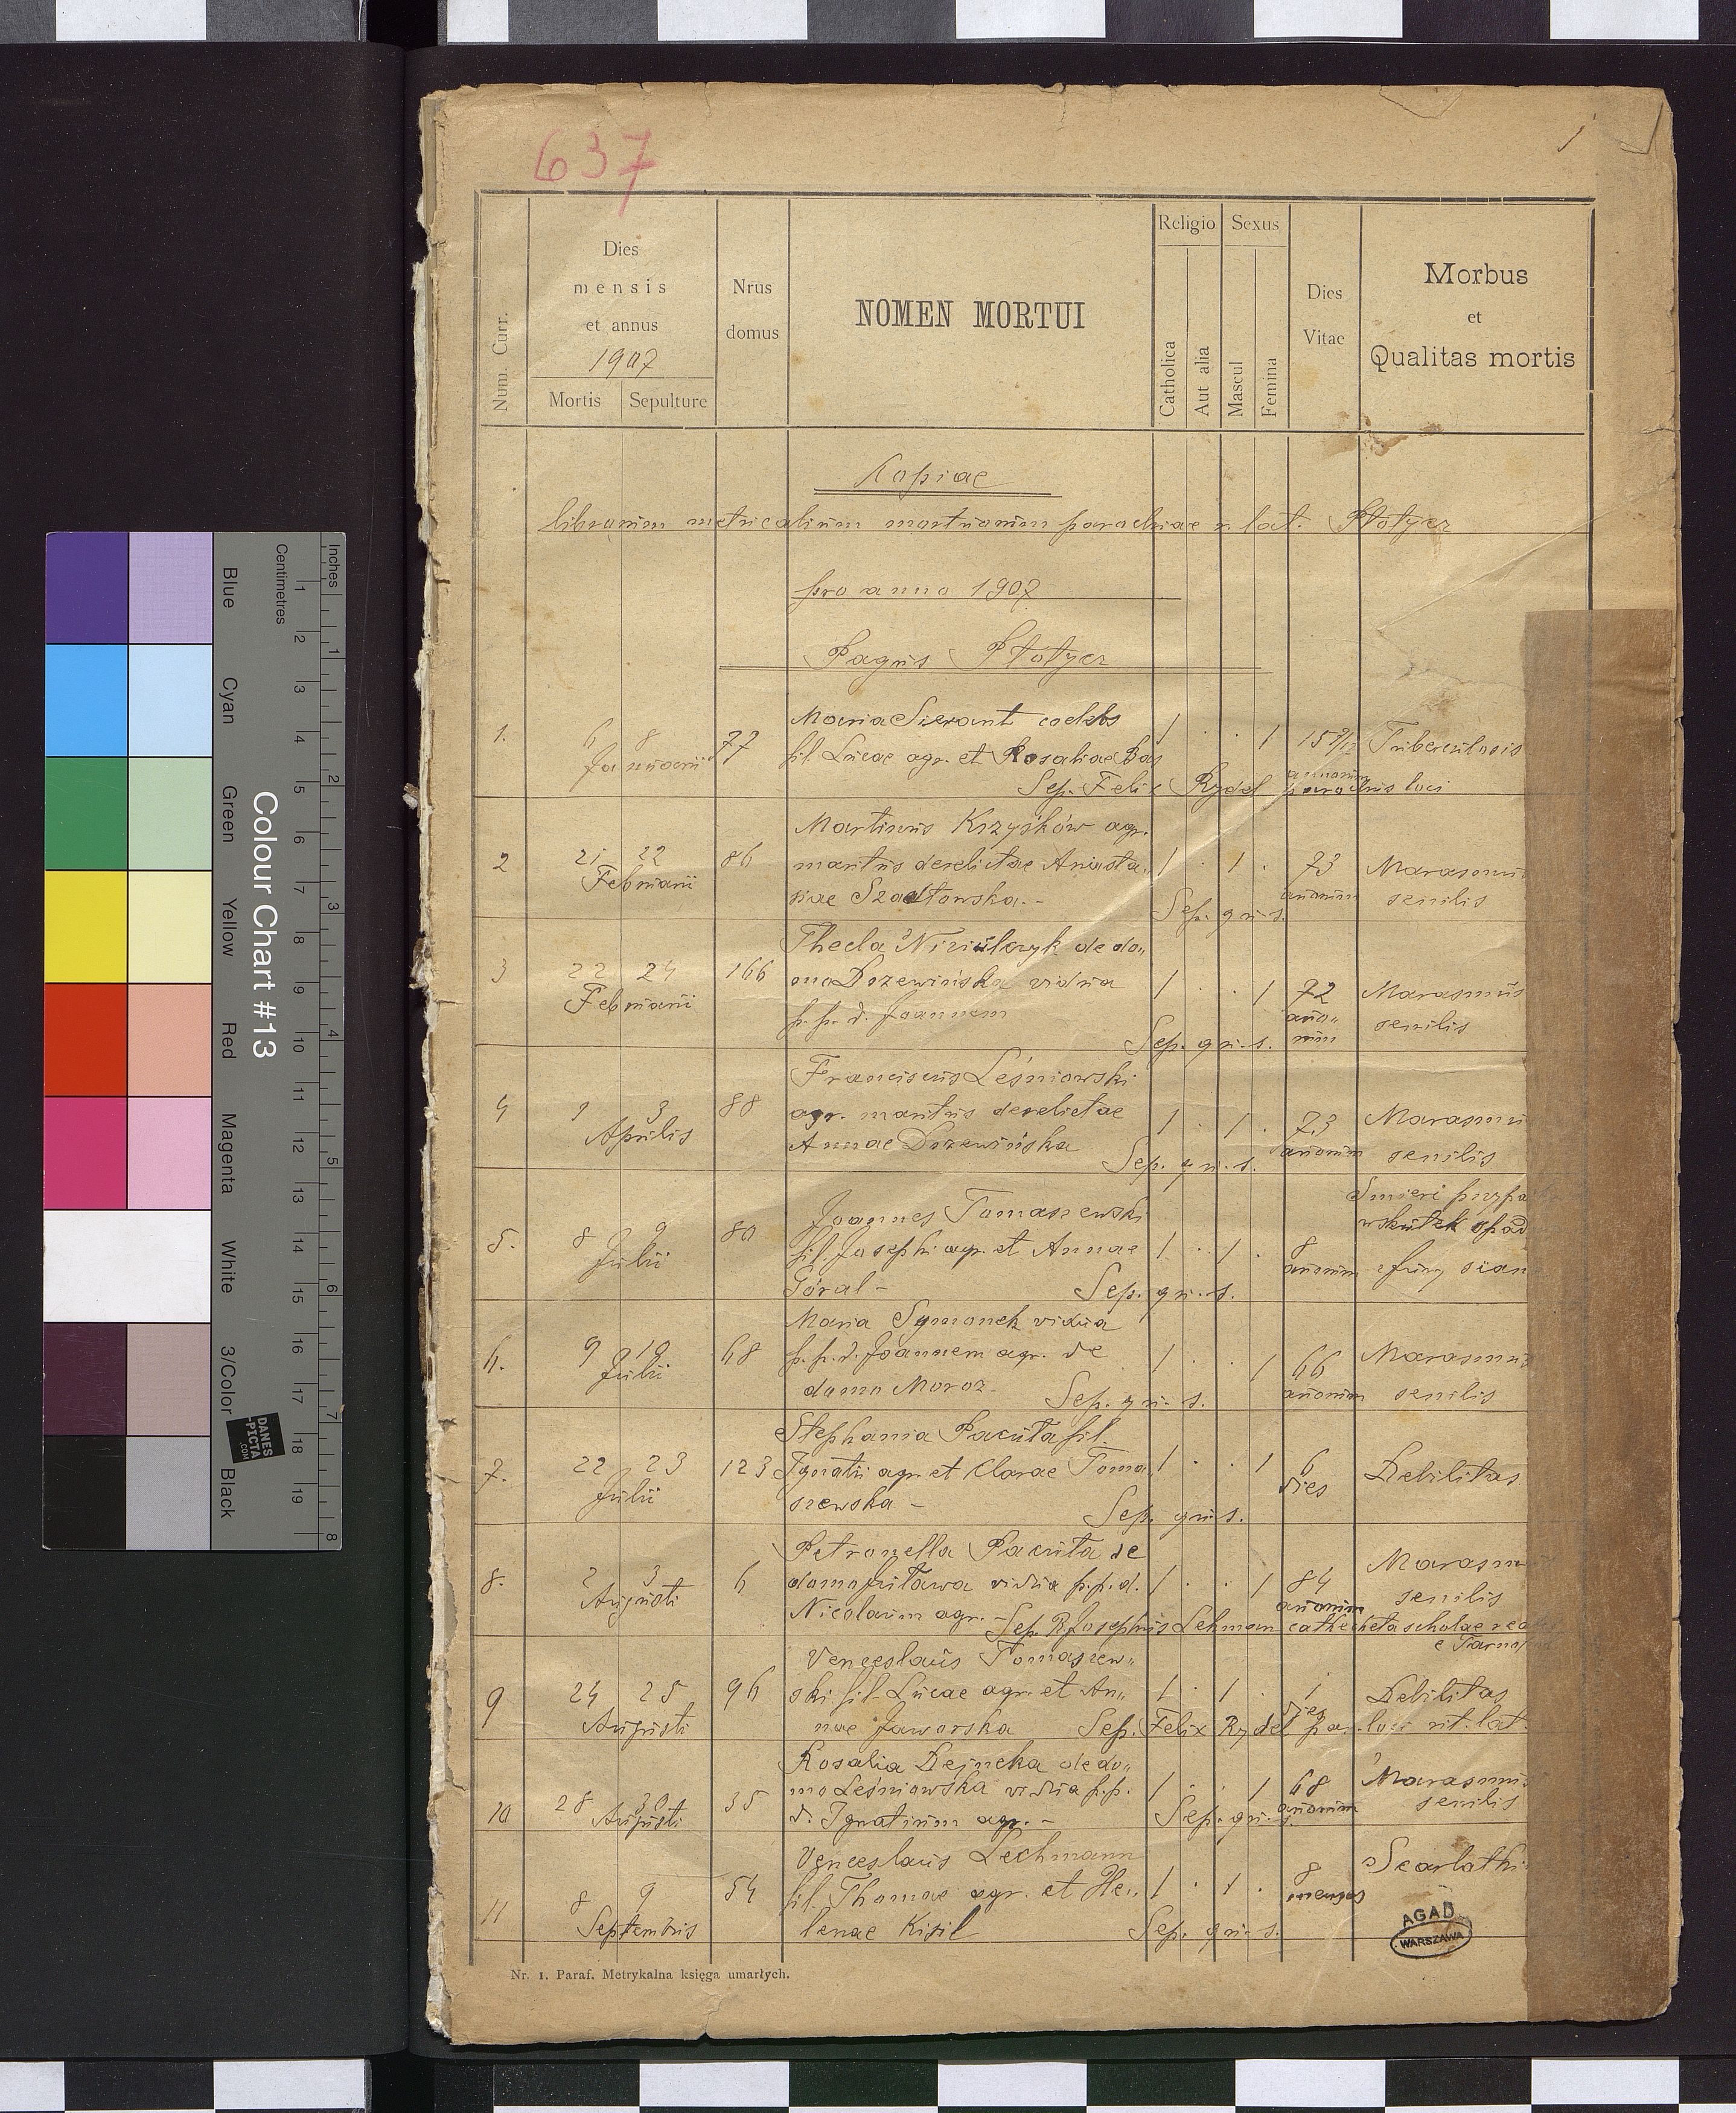 637
1
Num. Curr.
Dies
mensis
et annus
1907
Mortis
Sepulture
Nrus
domus
NOMEN MORTUI
Religio
Catholica
Aut alia
Sexus
Mascul
Femina
Dies
Vitae
Morbus
et
Qualitas mortis
Kopiae
librorum metricalium mortuorum parochiae r. lat. Płotycz
pro anno 1907
Pagus Płotycz
Maria Sierant coelebs
1. 6 8 77 fil. Lucae agr. et Rosaliae Baś 1 . . 1 Tuberculosis
Januarii annorum
Sep. Felix Rydel parochus loci
Martinus Krzyśków agr.
2 21 22 86 maritus derelictae Anasta„ 1 . 1 . 73 Marasmus
Februarii siae Szadkowska.- annorum senilis
Sep. qui s.
Thecla Niziulczyk de do„
3 22 24 166 mo Drzewińska vidua 1 . . 1 72 Marasmus
Februarii p. p. d. Joannem anno„ senilis
rum
Sep. qui s.
Franciscus Leśniowski
4 1 3 88 agr. maritus derelictae 1 . 1 . 73 Marasmu
Aprilis Annae Drzewińska annorum senilis
Sep. qui s.
Śmierć przypa
Joannes Tomaszewski wskutek spad
5. 8 9 80 fil. Josephi agr. et Annae 1 . 1 . 8 z fury sian
Julii Góral - annorum
Sep. qui s.
Maria Symonek vidua
6. 9 10 68 p. p. d. Joannem agr. de 1 . . 1 66 Marasmus
Julii domo Moroz annorum senilis
Sep. qui s.
Stephania Pacuła fil.
7. 22 23 123 Ignatii agr. et Clarae Toma 1 . . 1 6 Debilitas
Julii szewska - dies
Sep. qui s.
Petronella Pacuła de
8. 2 3 6 domo vidua p. p. d. 1 . . 1 84 Marasmu
Augusti Nicolaum agr. - annorum senilis
Sep. R. Josephus Lehman cathecheta scholae rea
e Tarno
Venceslaus Tomaszew„
9 24 25 96 ski fil. Lucae agr. et An„ 1 . 1 . 1 Debilitas
Augusti nae Jaworska dies
Sep. Felix Rydel par. loci rit. lat.
Rosalia Dejneka de do„
10 28 30 35 mo Leśniowska vidua p. p. 1 . . 1 68 Marasmus
Augusti d. Ignatium agr. - annorum senilis
Sep. qui s.
Venceslaus Lechmann
11 8 9 54 fil. Thomae agr. et He„ 1 . 1 . 8 Scarlathi
Septembris lenae Kisil menses
Sep. qui s.
AGAD
WARSZAWA
Nr. 1. Paraf. Metrykalna księga umarłych.
Inches
Centimetres
1 2 3 4 5 6 7 8 9 10 11 12 13 14 15 16 17 18 19
1 2 3 4 5 6 7 8
Colour Chart #13
Blue
Cyan
Green
Yellow
Red
Magenta
White
3/Color
Black
DANES
-PICTA
.COM